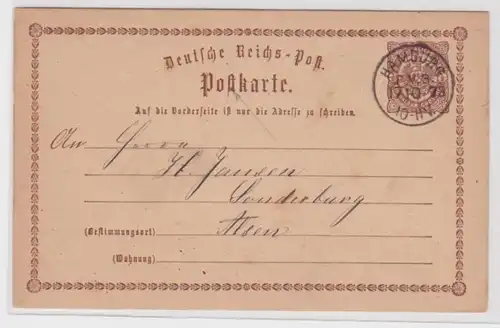 Deutsche Reichs-Post.
Postkarte.
HAMBURG
17 10 73
Auf die Vorderseite ist nur die Adresse zu schreiben.
An Herrn
H. Jansen
Sonderburg
(Bestimmungsort) Alsen
(Wohnung)